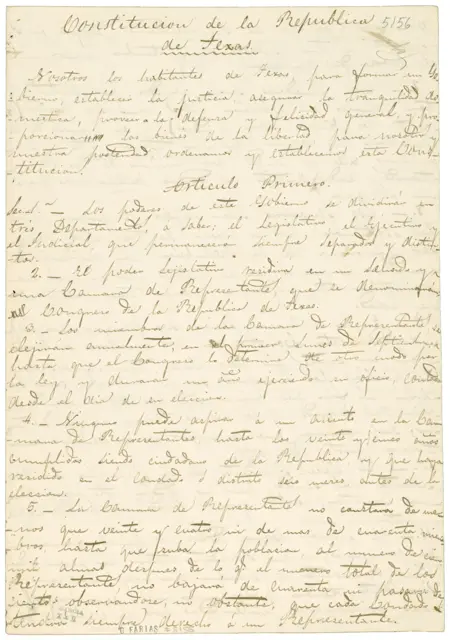 Constitucion de la Republica
5156
de Texas.
Nosotros los habitantes de Texas, para formar un Go-
bierno, establecer la justicia asegurar la tranquilidad do-
mestica, proveer a la defensa y felicidad general, y pro-
porcionarnos los bienes de la libertad para nosotros y
nuestra posteridad, ordenamos y establecemos esta Cons-
titucion.
Articulo Primero.
Sec. 1ª - Los poderes de este Gobierno se dividirán en
tres, Departamentos, á saber; el Legislativo, el Ejecutivo y
el Judicial, que permanecerán siempre separados y distin-
tos.
2. - El poder Lejislativo residirá en un Senado y
una Camara de Representantes, que se denominará
el Congreso de la Republica de Texas.
3. - Los miembros de la Camara de Representantes se
elejirán anualmente, en el primer Lunes de Setiembre
hasta que el Congreso lo determine de otro modo por
la ley, y durarán un año ejerciendo su oficio, contado
desde el dia de su eleccion.
4. - Ninguno puede aspirar á un asiento en la Ca-
mara de Representantes, hasta los veinte y cinco años
cumplidos siendo ciudadano de la Republica y que haya
residido en el Condado ó distrito seis meses antes de la
eleccion.
5. - La Camara de Representantes no constará de me-
nos que veinte y cuatro, ni de mas de cuarenta miem-
bros, hasta que suba la poblacion, al numero de cien
mil almas despues de lo q. el numero total de los
Representantes no bajara de cuarenta ni pasará de
ciento: observandose, no obstante, que cada Condado
tendrá siempre derecho á un Representante.
P. FARIAS